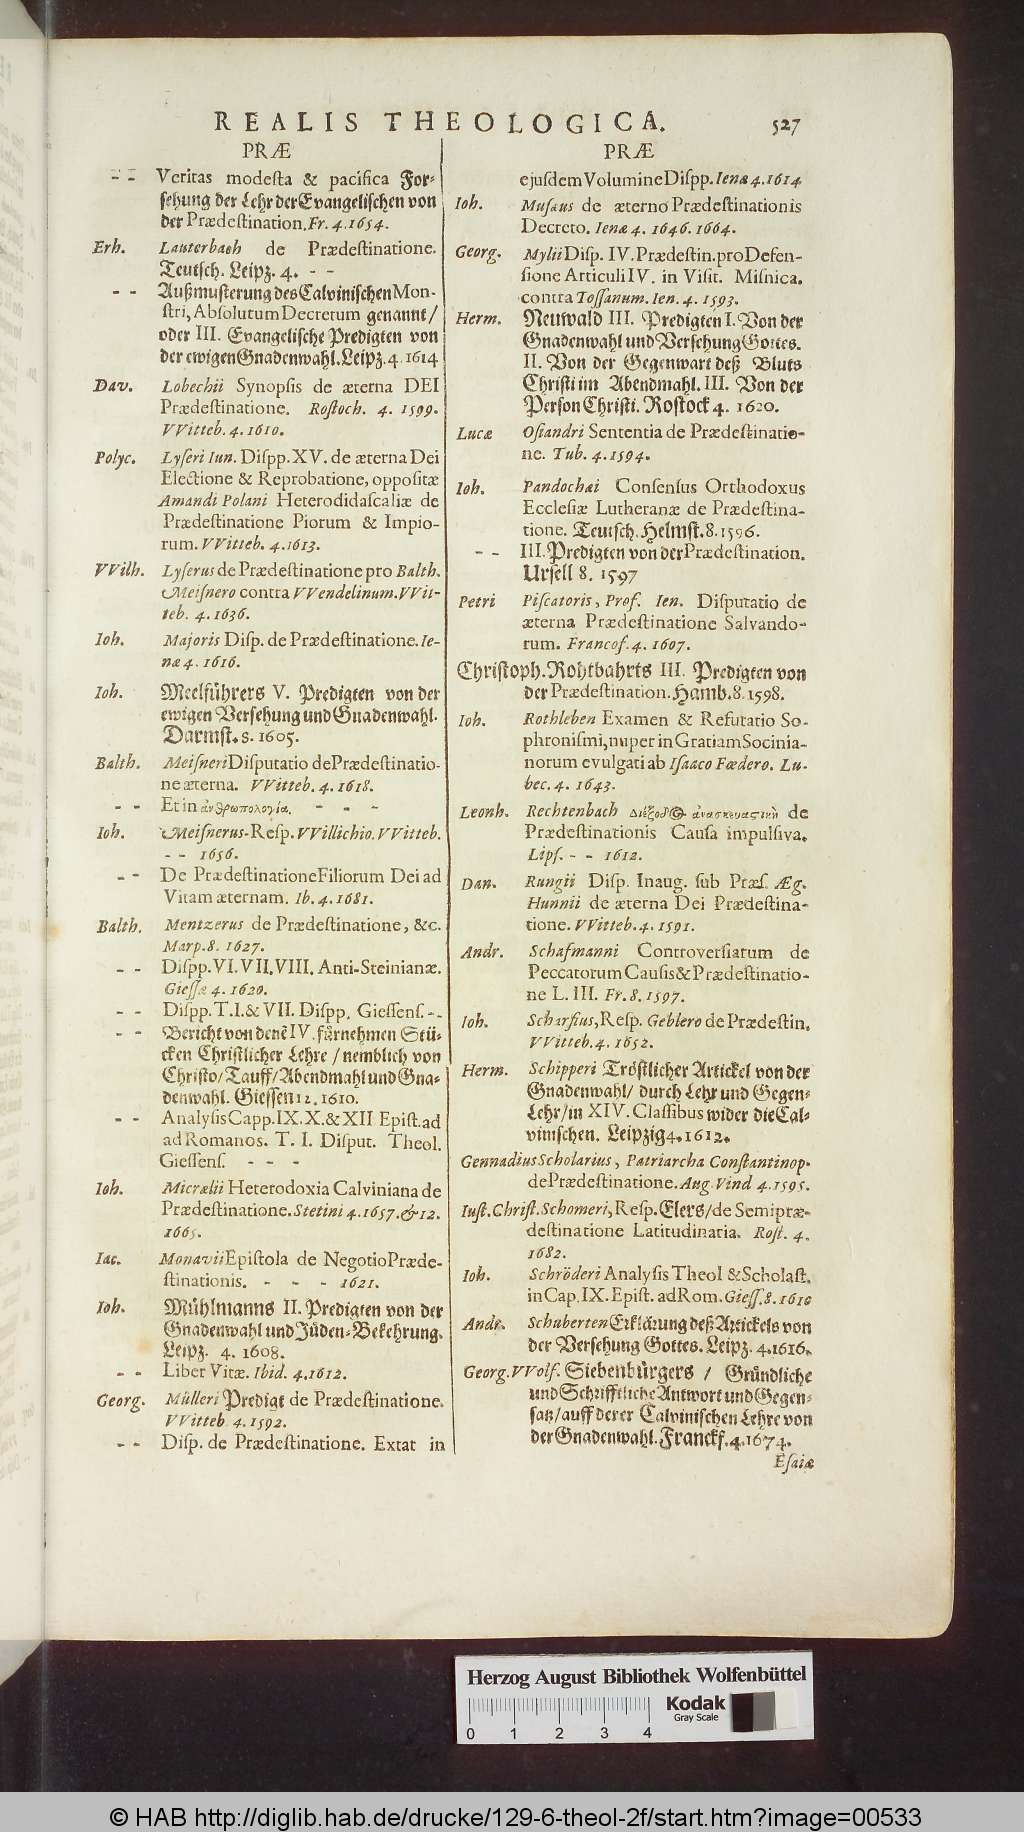 REALIS THEOLOGICA. 527
PRÆ
-- Veritas modesta & pacifica For-
sehung der Lehr der Evangelischen von
der Prædestination. Fr. 4. 1654.
Erh. Lauterbach de Prædestinatione.
Teutsch. Leipz. 4. - -
-- Außmusterung des Calvinischen Mon-
stri, Absolutum Decretum genannt/
oder III. Evangelische Predigten von
der ewigen Gnadenwahl. Leipz. 4. 1614
Dav. Lobechii Synopsis de æterna DEI
Prædestinatione. Rostoch. 4. 1599.
VVitteb. 4. 1610.
Polyc. Lyseri Iun. Dispp. XV. de æterna Dei
Electione & Reprobatione, oppositæ
Amandi Polani Heterodidascaliæ de
Prædestinatione Piorum & Impio-
rum. VVitteb. 4. 1613.
VVilh. Lyserus de Prædestinatione pro Balth.
Meisnero contra VVendelinum. VVit-
teb. 4. 1636.
Ioh. Majoris Disp. de Prædestinatione. Ie-
næ 4. 1616.
Ioh. Meelführers V. Predigten von der
ewigen Versehung und Gnadenwahl.
Darmst. 8. 1605.
Balth. Meisneri Disputatio de Prædestinatio-
ne æterna. VVitteb. 4. 1618.
-- Et in ἀνθρωπολογία. - - -
Ioh. Meisnerus. Resp. VVillichio. VVitteb.
-- 1656.
-- De Prædestinatione Filiorum Dei ad
Vitam æternam. Ib. 4. 1681.
Balth. Mentzerus de Prædestinatione, &c.
Marp. 8. 1627.
-- Dispp. VI. VII. VIII. Anti-Steinianæ.
Giessæ 4. 1620.
-- Dispp. T. I. & VII. Dispp. Giessens. --
-- Bericht von denẽ IV. fürnehmen Stü-
cken Christlicher Lehre / nemblich von
Christo/ Tauff/ Abendmahl und Gna-
denwahl. Giessen 12. 1610.
-- Analysis Capp. IX. X. & XII Epist. ad
ad Romanos. T. I. Disput. Theol.
Giessens. - - -
Ioh. Micrælii Heterodoxia Calviniana de
Prædestinatione. Stetini 4. 1657. & 12.
1665.
Iac. Monavii Epistola de Negotio Præde-
stinationis. - - - 1621.
Ioh. Mühlmanns II. Predigten von der
Gnadenwahl und Jüden-Bekehrung.
Leipz. 4. 1608.
-- Liber Vitæ. Ibid. 4. 1612.
Georg. Mülleri Predigt de Prædestinatione.
VVitteb. 4. 1592.
-- Disp. de Prædestinatione. Extat in
PRÆ
ejusdem Volumine Dispp. Ienæ 4. 1614
Ioh. Musæus de æterno Prædestinationis
Decreto. Ienæ 4. 1646. 1664.
Georg. Mylii Disp. IV. Prædestin. pro Defen-
sione Articuli IV. in Visit. Misnica.
contra Tossanum. Ien. 4. 1593.
Herm. Neuwald III. Predigten I. Von der
Gnadenwahl und Versehung Gottes.
II. Von der Gegenwart deß Bluts
Christi im Abendmahl. III. Von der
Person Christi. Rostock 4. 1620.
Lucæ Osiandri Sententia de Prædestinatio-
ne. Tub. 4. 1594.
Ioh. Pandochæi Consensus Orthodoxus
Ecclesiæ Lutheranæ de Prædestina-
tione. Teutsch. Helmst. 8. 1596.
-- III. Predigten von der Prædestination.
Ursell 8. 1597
Petri Piscatoris, Prof. Ien. Disputatio de
æterna Prædestinatione Salvando-
rum. Francof. 4. 1607.
Christoph. Rohtbahrts III. Predigten von
der Prædestination. Hamb. 8. 1598.
Ioh. Rothleben Examen & Refutatio So-
phronismi, nuper in Gratiam Socinia-
norum evulgati ab Isaaco Fædero. Lu-
bec. 4. 1643.
Leonh. Rechtenbach Διέξοδος ἀνασκευαστικὴ de
Prædestinationis Causa impulsiva.
Lips. - - 1612.
Dan. Rungii Disp. Inaug. sub Præs. Æg.
Hunnii de æterna Dei Prædestina-
tione. VVitteb. 4. 1591.
Andr. Schafmanni Controversiarum de
Peccatorum Causis & Prædestinatio-
ne L. III. Fr. 8. 1597.
Ioh. Scharfius, Resp. Geblero de Prædestin.
VVitteb. 4. 1652.
Herm. Schipperi Tröstlicher Artickel von der
Gnadenwahl/ durch Lehr und Gegen-
Lehr/ in XIV. Classibus wider die Cal-
vinischen. Leipzig 4. 1612.
Gennadius Scholarius, Patriarcha Constantinop.
de Prædestinatione. Aug. Vind 4. 1595.
Iust. Christ. Schomeri, Resp. Elers/ de Semipræ-
destinatione Latitudinaria. Rost. 4.
1682.
Ioh. Schröderi Analysis Theol & Scholast.
in Cap. IX. Epist. ad Rom. Giess. 8. 1610
Andr. Schuberten Erklärung deß Artickels von
der Versehung Gottes. Leipz. 4. 1616.
Georg. VVolf. Siebenbürgers / Gründliche
und Schrifftliche Antwort und Gegen-
satz/ auff derer Calvinischen Lehre von
der Gnadenwahl. Franckf. 4. 1674.
Esaiæ
Herzog August Bibliothek Wolfenbüttel
0 1 2 3 4
Kodak
Gray Scale
© HAB http://diglib.hab.de/drucke/129-6-theol-2f/start.htm?image=00533